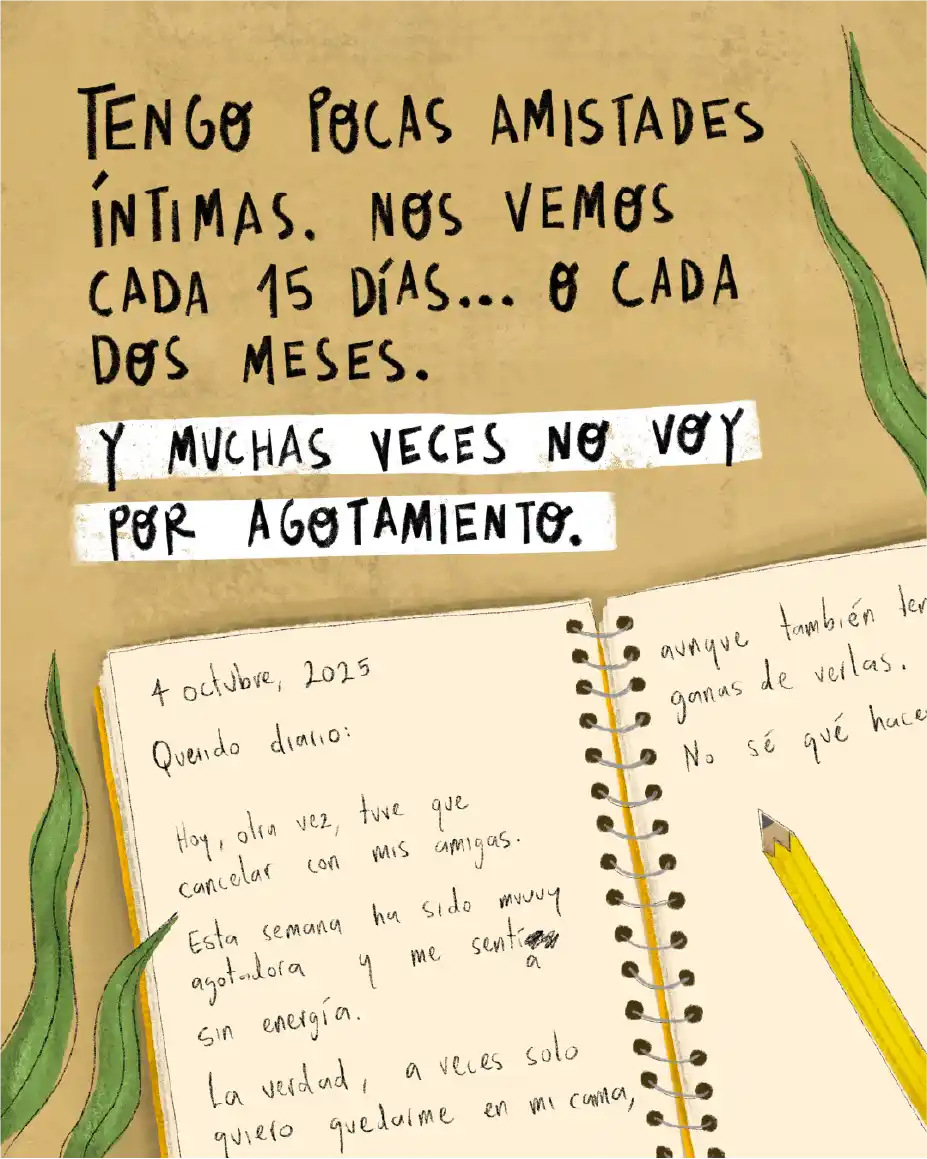 TENGO POCAS AMISTADES
ÍNTIMAS. NOS VEMOS
CADA 15 DÍAS... O CADA
DOS MESES.
Y MUCHAS VECES NO VOY
POR AGOTAMIENTO.
4 octubre, 2025
Querido diario:
Hoy, otra vez, tuve que
cancelar con mis amigas.
Esta semana ha sido muuuy
agotadora y me sentí
a
sin energía.
La verdad, a veces solo
quiero quedarme en mi cama,
aunque también ten
ganas de verlas.
No sé qué hace